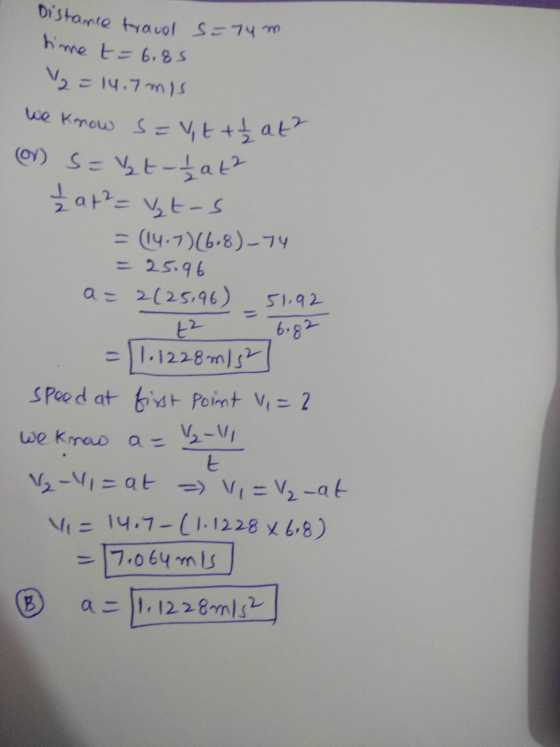 Distance travel S = 74 m
time t = 6.8 s
V₂ = 14.7 m/s
We know S = V₁t + ½ at²
(or) S = V₂t - ½ at²
½ at² = V₂t - S
= (14.7)(6.8) - 74
= 25.96
a = 2(25.96) / t² = 51.92 / 6.8²
= 1.1228 m/s²
Speed at first point V₁ = ?
we know a = V₂-V₁ / t
V₂-V₁ = at ⇒ V₁ = V₂-at
V₁ = 14.7 - (1.1228 × 6.8)
= 7.064 m/s
(B) a = 1.1228 m/s²